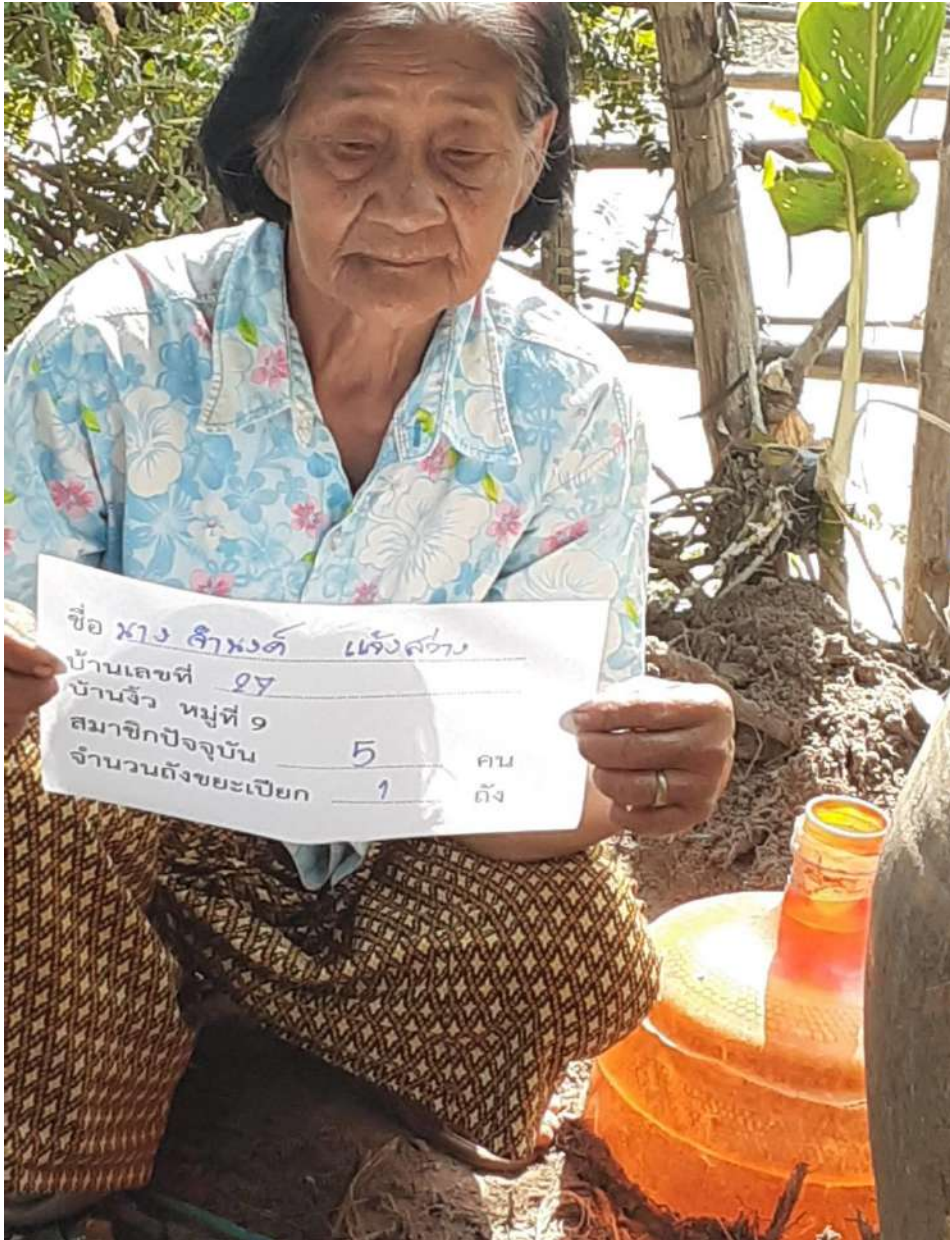 ชื่อ นาง จำนงค์ แจ้งสว่าง
บ้านเลขที่ 27
บ้านงิ้ว หมู่ที่ 9
สมาชิกปัจจุบัน 5 คน
จำนวนถังขยะเปียก 1 ถัง